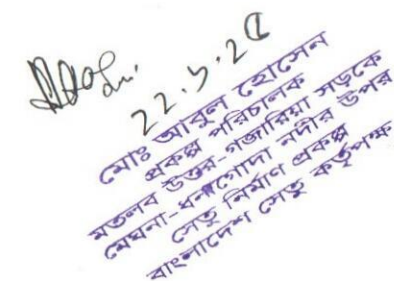 22.১.2
মোঃ আবুল হোসেন
প্রকল্প পরিচালক
মতলব উত্তর-গজারিয়া সড়কে
মেঘনা-ধনাগোদা নদীর উপর
সেতু নির্মাণ প্রকল্প
বাংলাদেশ সেতু কর্তৃপক্ষ